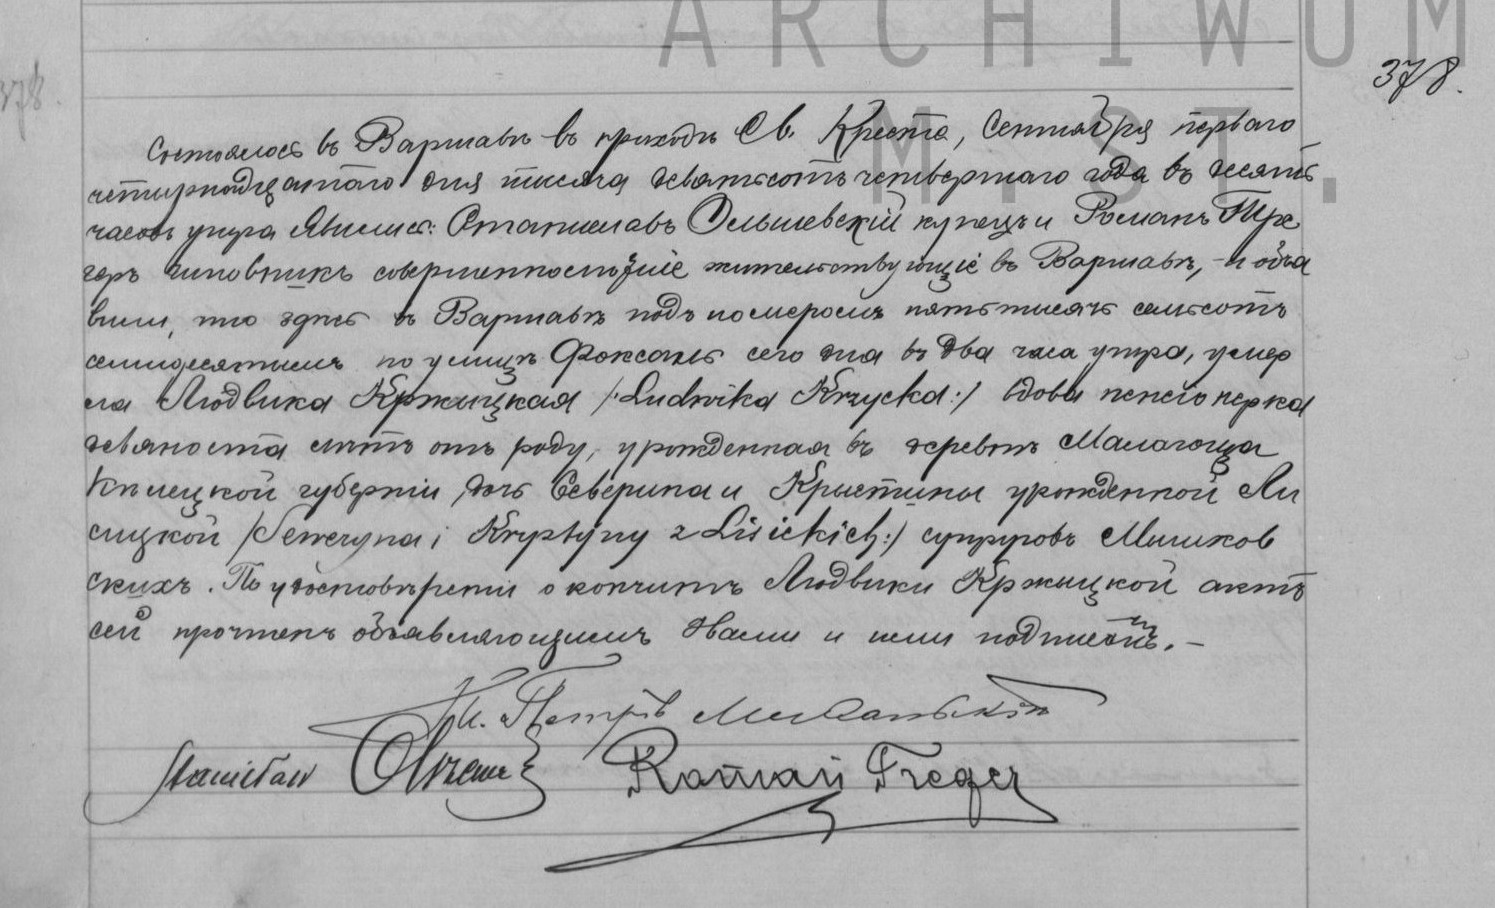 ARCHIWUM
M. ST.
378.
378.
Состоялось въ Варшавѣ въ приходѣ Св. Креста, Сентября перваго
четырнадцатого дня тысяча девятьсотъ четвертаго года въ десять
часовъ утра Явились: Станиславъ Ольшевскій купецъ и Романъ Тре
геръ чиновникъ совершеннолѣтніе жительствующіе въ Варшавѣ, – и объя
вили, что здѣсь въ Варшавѣ подъ номеромъ пять тысячъ семьсотъ
семидесятымъ по улицѣ Фоксаль сего дня въ два часа утра, умер
ла Людвика Кржицкая /:Ludwika Krzycka:/ вдова пенсіонерка
девяноста лѣтъ отъ роду, урожденная въ деревнѣ Малагоща
Кѣлецкой губерніи, дочь Северина и Крыстины урожденной Ли
сицкой /Seweryna i Krystyny z Lisickich:/ супруговъ
скихъ. По удостовѣреніи о кончинѣ Людвики Кржицкой актъ
сей прочтенъ объявляющимъ Нами и ими подписанъ. –
Кс. Петръ
Stanisław
Roman Treger